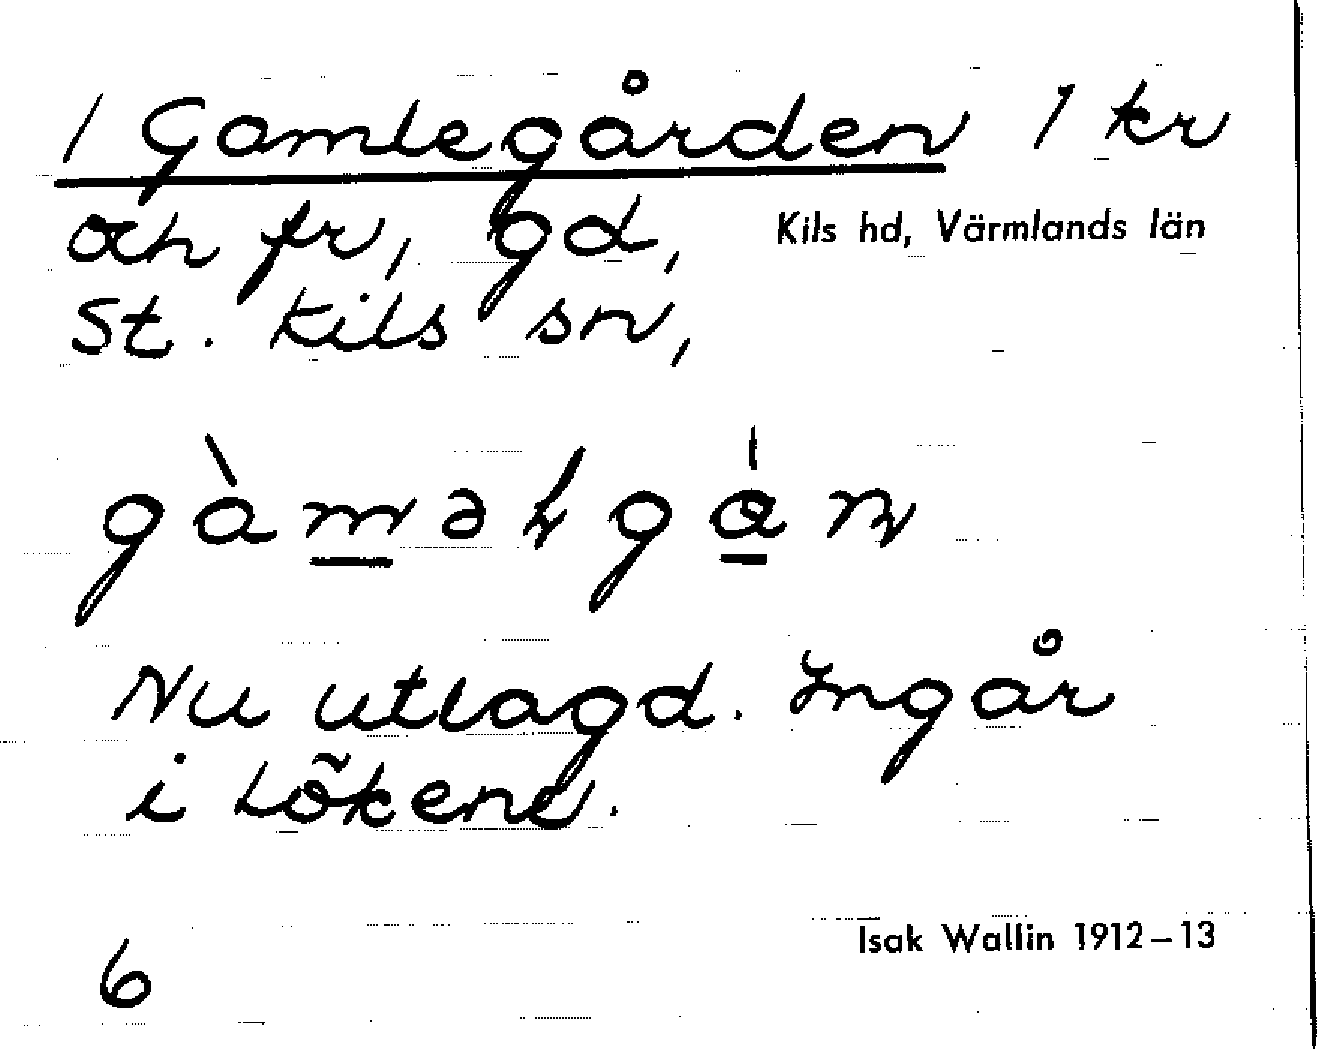 / Gamlegården 1 kr
och fr, gd, Kils hd, Värmlands län
St. Kils sn,
Nu utlagd. Ingår
i Lökene.
Isak Wallin 1912–13
6